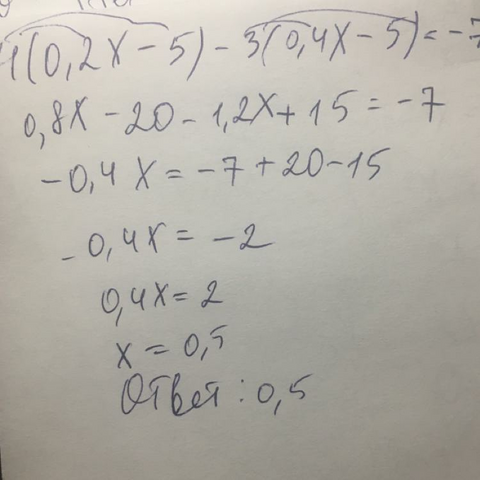 (0,2x-5)-3(0,4x-5)=-7
0,8x-20-1,2x+15=-7
-0,4x=-7+20-15
-0,4x=-2
0,4x=2
x=0,5
Ответ: 0,5